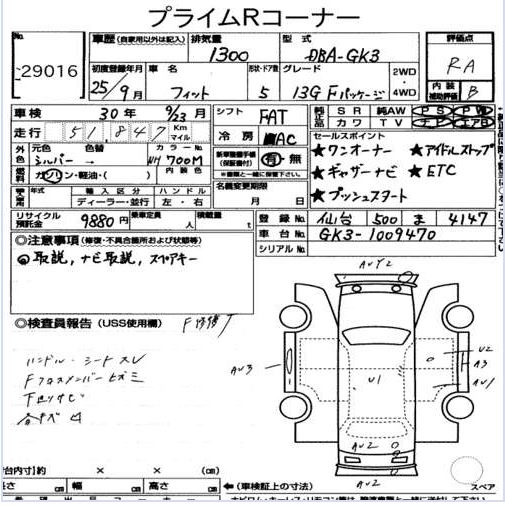 プライムRコーナー
No.
29016
車歴 (自家用以外は記入)
排気量
型式
1300
DBA-GK3
評価点
RA
内装
補助評価
B
初度登録年月
車名
形状・ドア数
グレード
25/9月
フィット
5
13G Fパッケージ
2WD
4WD
車検
30年 9/23月
シフト
FAT
純正品
SR
純AW
PS
PW
カワ
TV
走行
51,847
Km
マイル
冷房
AC
セールスポイント
★ワンオーナー ★アイドルストップ
★ギャザーナビ ★ETC
★プッシュスタート
外色
元色
色替
カラーNo.
内装色
シルバー →
NH700M
新車整備手帳
(保証書付)
有・無
燃料
ガソリン・軽油・( )
名義変更期限
月 日
年式
輸入区分
ハンドル
ディーラー・並行
左・右
リサイクル
預託金
9880円
乗車定員
人
積載量
t
登録No.
仙台 500 ま 4147
車台No.
GK3-1009470
シリアルNo.
◎注意事項 (修復・不具合箇所および状態等)
◎取説, ナビ取説, スペアキー
◎検査員報告 (USS使用欄)
ハンドル・シートスレ
Fクロスメンバーヒズミ
下廻サビ
AU2
AU3
U1
U2
A3
AU1
AU2
AU2
スペア
台内寸)約 × × (cm)
長さ cm 幅 cm 高さ cm
←(車検証上の寸法)